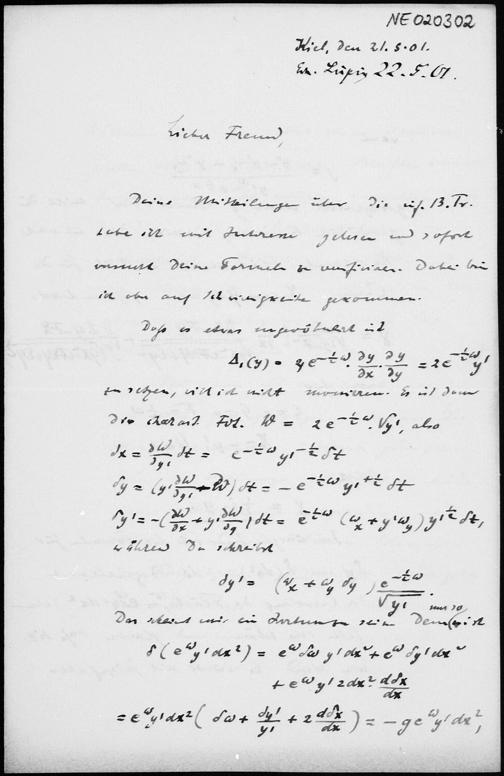 NE020302
Kiel, den 21.5.01.
Erh. Leipzig 22.5.01.
Lieber Freund,
Deine Mitteilungen über die inf. B. Tr.
habe ich mit Interesse gelesen und sofort
versucht Deine Formeln zu verifiziren. Dabei bin
ich aber auf Schwierigkeiten gekommen.
Dass es etwas ungewöhnlich ist
Δ₁(y) = 2 e^{-½ω} · ∂y/∂x · ∂y/∂y = 2 e^{-½ω} y'
zu setzen, will ich nicht moniren. Es ist dann
die charact. Fct. W = 2 e^{-½ω} · √y', also
δx = ∂W/∂y' δt = e^{-½ω} y'^{-½} δt
δy = (y' ∂W/∂y' - W) δt = - e^{-½ω} y'^{+½} δt
δy' = -(∂W/∂x + y' ∂W/∂y) δt = e^{-½ω} (ω_x + y' ω_y) y'^{½} δt,
während Du schreibst
δy' = (ω_x + ω_y δy) e^{-½ω}/√y' .
Das scheint mir ein Irrthum zu sein. Denn nur so ist
δ(e^ω y' dx²) = e^ω δω y' dx² + e^ω δy' dx²
+ e^ω y' 2 dx² · dδx/dx
= e^ω y' dx² ( δω + δy'/y' + 2 dδx/dx ) = - g e^ω y' dx²,